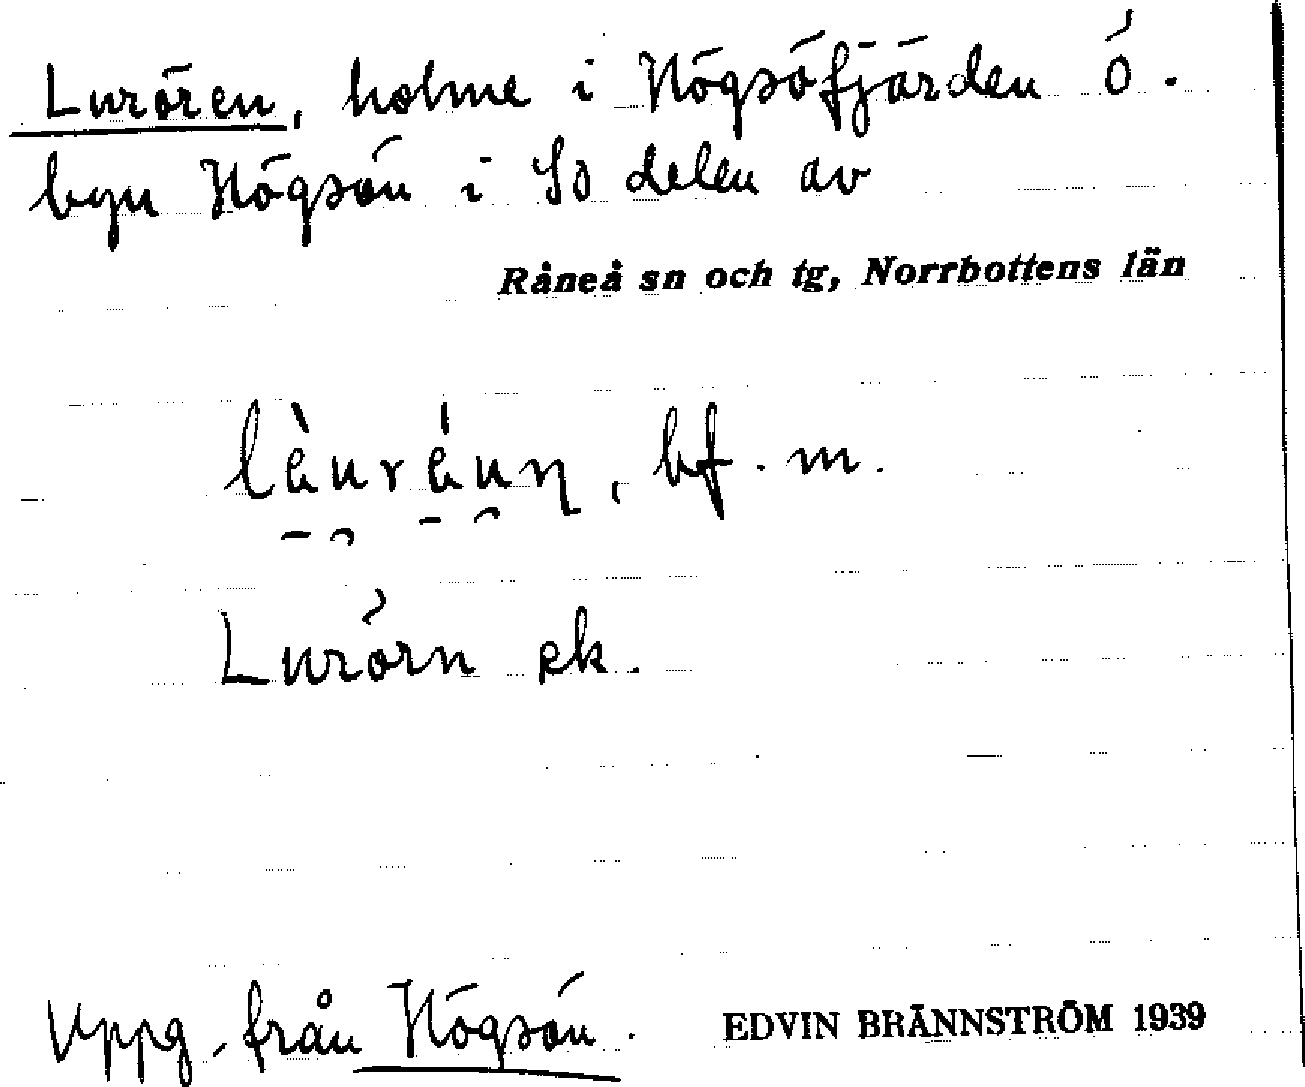 Lurören, holme i Högsöfjärden ö.
byn Högsön i So delen av
Råneå sn och tg, Norrbottens län
lèụrẹ́ụɳ, bf. m.
Lurörn ek.
Uppg. från Högsön.
EDVIN BRÄNNSTRÖM 1939